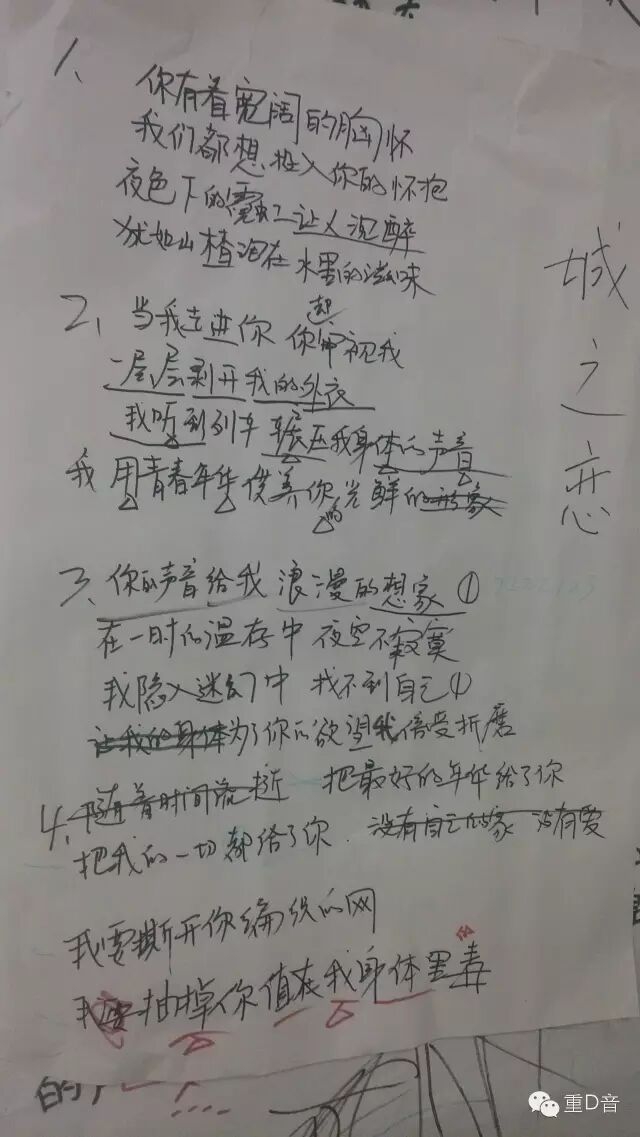 城之恋
1、你有着宽阔的胸怀
我们都想投入你的怀抱
夜色下的霓虹让人沉醉
犹如山楂泡在水里的滋味
2、当我走进你 你审视我
起
一层层剥开我的外衣
我听到列车辗压我身体的声音
我用青春年华供养你光鲜的形象
的
3、你的声音给我浪漫的想象①
在一时的温存中 夜空不寂寞
我隐入迷幻中 找不到自己①
让我的身体为了你的欲望我倍受折磨
4、随着时间流逝 把最好的年华给了你
把我的一切都给了你 没有自己的家 没有爱
我要撕开你编织的网
我要抽掉你值在我身体里毒
的
的,
重D音